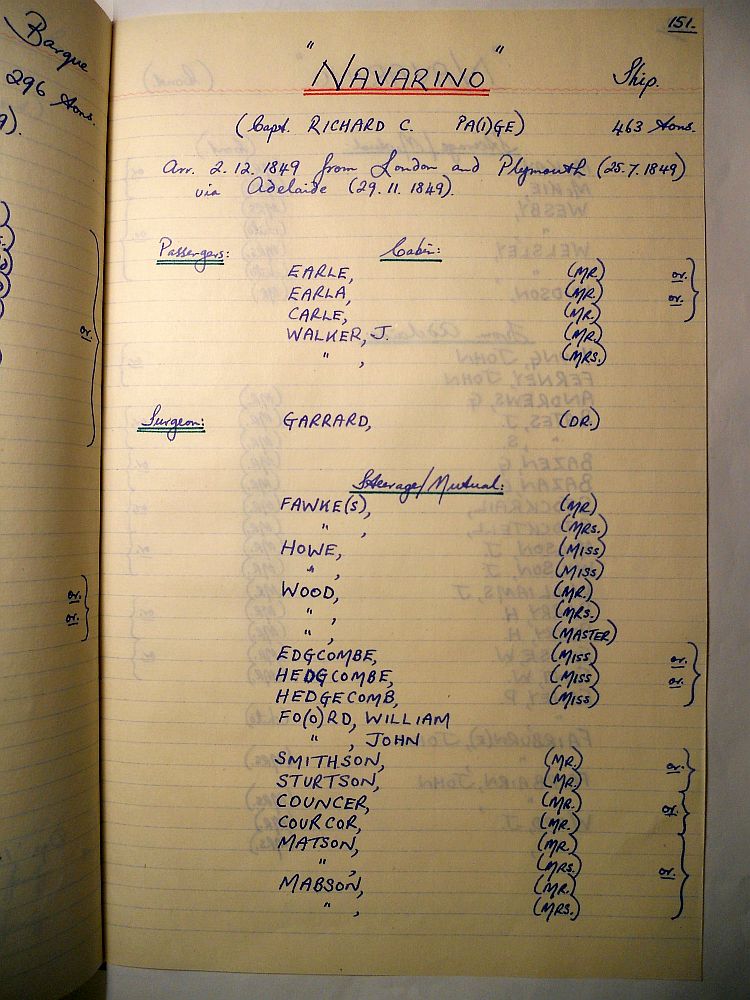 Barque
296 tons.
9).
or.
or.
or.
151.
"NAVARINO" Ship.
(Capt. RICHARD C. PA(I)GE) 463 tons.
Arr. 2.12.1849 from London and Plymouth (25.7.1849)
via Adelaide (29.11.1849).
Passengers: Cabin:
EARLE, (MR.) or.
EARLA, (MR.) or.
CARLE, (MR.)
WALKER, J. (MR.)
" , (MRS.)
Surgeon: GARRARD, (DR.)
Steerage/Mutual:
FAWKE(S), (MR)
" , (MRS.)
HOWE, (MISS)
" , (MISS)
WOOD, (MR.)
" , (MRS.)
" , (MASTER)
EDGCOMBE, (MISS) or.
HEDGCOMBE, (MISS) or.
HEDGECOMB, (MISS)
FO(O)RD, WILLIAM
" , JOHN
SMITHSON, (MR.) or.
STURTSON, (MR.)
COUNCER, (MR.) or.
COURCOR, (MR.)
MATSON, (MR.)
" , (MRS.) or.
MABSON, (MR.)
" , (MRS.)